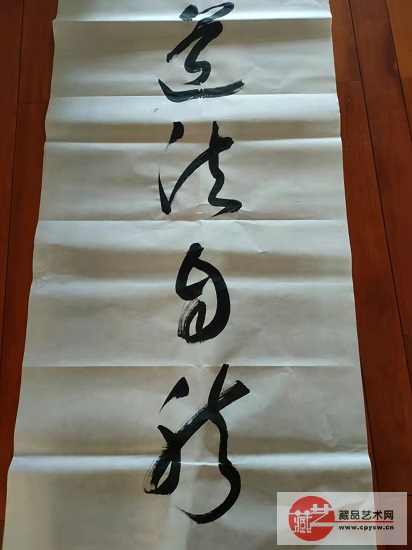 道
法
自
然
藏艺
藏品艺术网
www.cpysw.cn